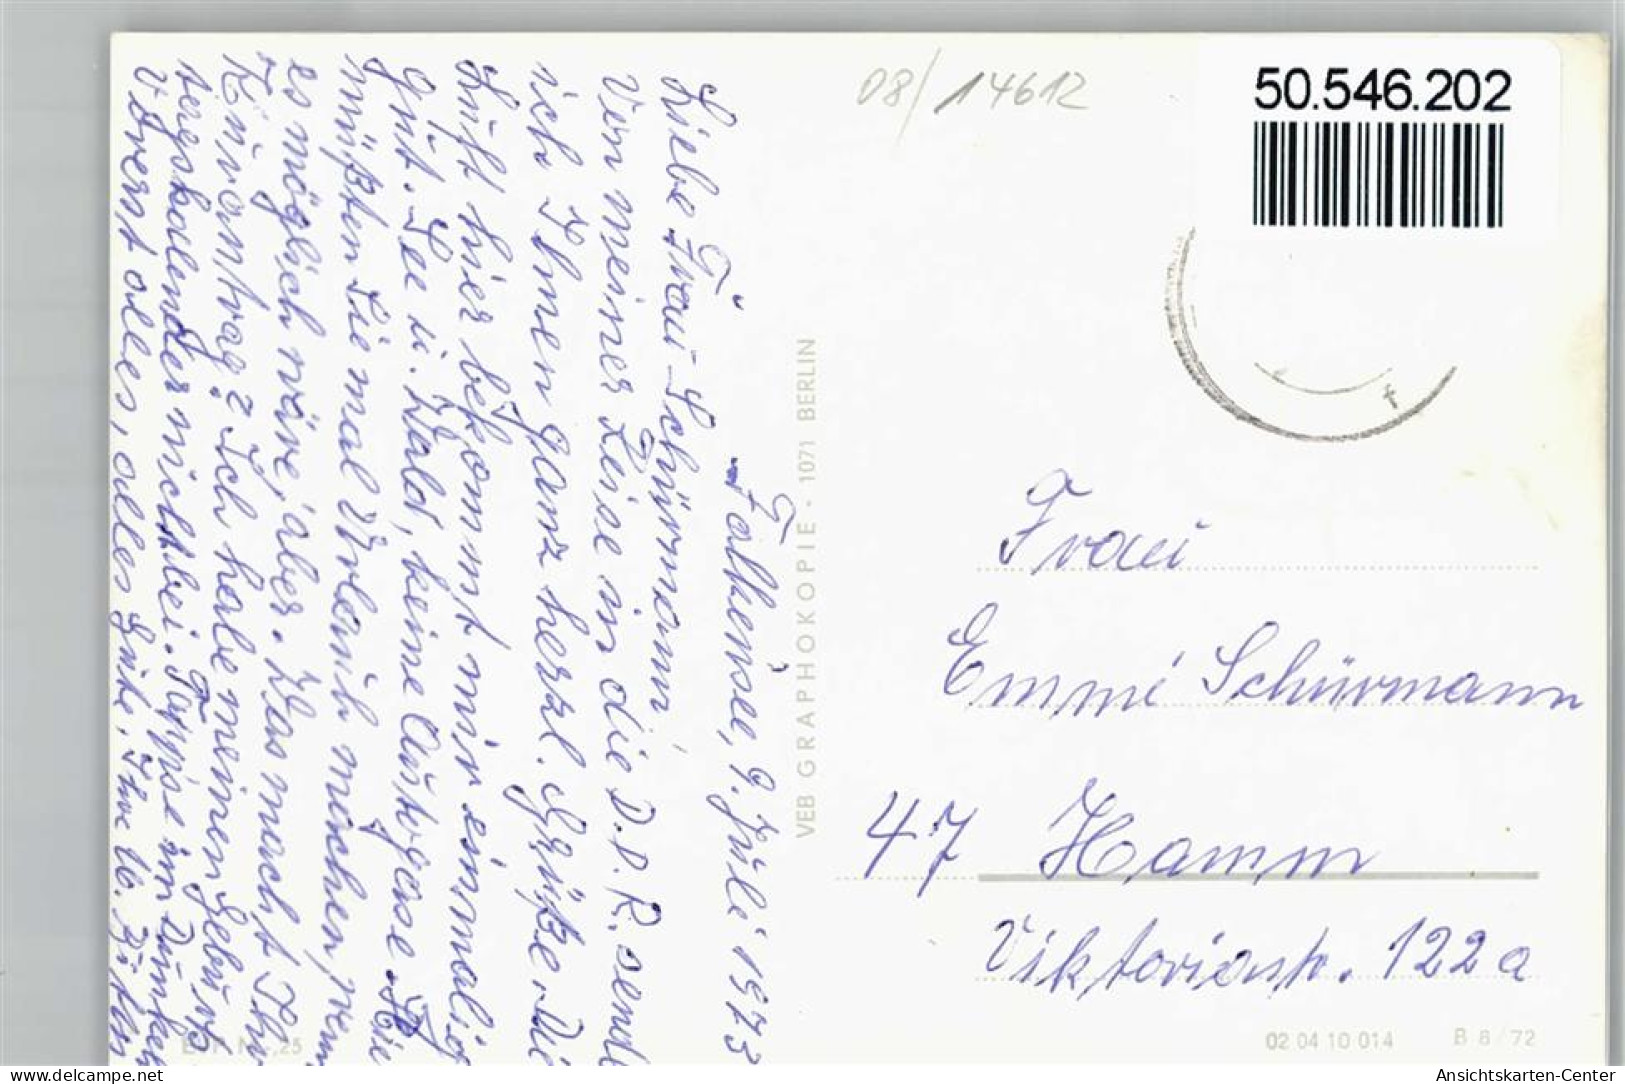 Falkensee, 9. Juli 1973
Liebe Frau Schürmann!
Von meiner Reise in die D.D.R. sende
ich Ihnen ganz herzl. Grüße. Die
Luft hier bekommt mir einmalig
gut. See u. Wald, keine Autogase. Hie
müßten Sie mal Urlaub machen, wenn
es möglich wäre, aber. Was macht Ihr
Kurantrag? Ich habe meinen Geburts
tagskalender nicht bei. Tappse im Dunkeln
Vorerst alles, alles Gute. Ihre
08/14612
50.546.202
VEB GRAPHOKOPIE · 1071 BERLIN
Frau
Emmi Schürmann
47 Hamm
Viktoriastr. 122a
02 04 10 014 B 8/72
Ansichtskarten-Center